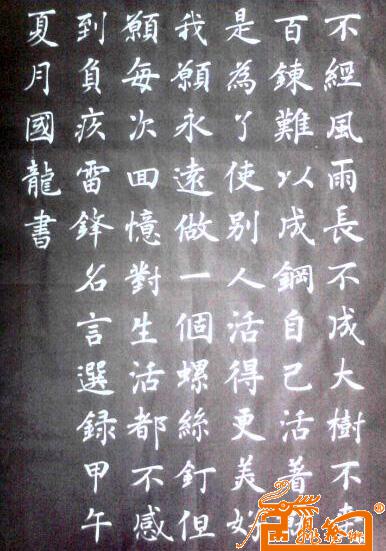 不經風雨長不成大樹不
百鍊難以成鋼自己活着就
是為了使別人活得更美好
我願永遠做一個螺絲釘但
願每次回憶對生活都不感
到負疚雷鋒名言選録甲午
夏月國龍書